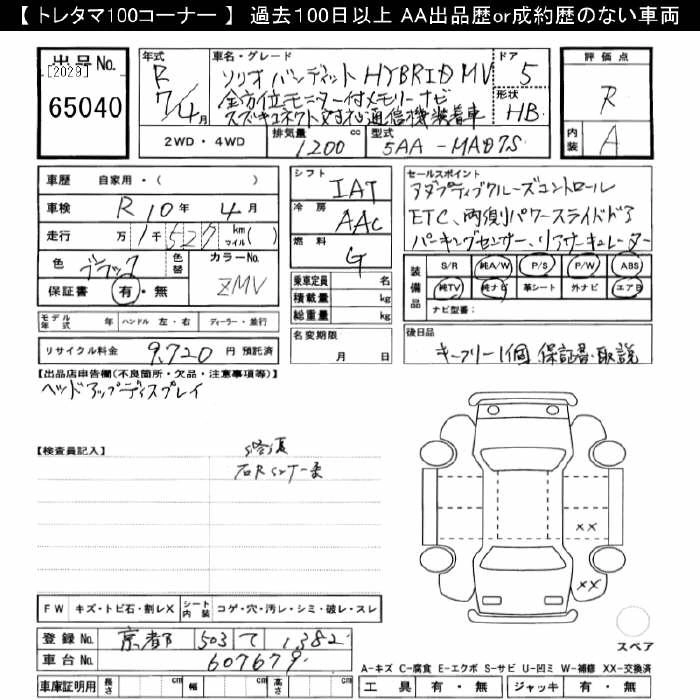 【 トレタマ100コーナー 】 過去100日以上 AA出品歴or成約歴のない車両
出品No.
[2029]
65040
年式
R 7/4月
車名・グレード
ソリオ バンディット HYBRID MV
全方位モニター付メモリーナビ
スズキコネクト対応通信機装着車
ドア
5
形状
HB
評価点
R
内装
A
2WD・4WD
排気量 1200 cc
型式 5AA-MAD7S
車歴 自家用・( )
車検 R 10年 4月
走行 万 1千 527 km マイル( )
色 ブラック
色替
カラーNo. ZMV
保証書 有・無
モデル年式 年 ハンドル 左・右 ディーラー・並行
リサイクル料金 9,720 円 預託済
シフト IAT
冷房 AAC
燃料 G
乗車定員 名
積載量 kg
総重量 kg
名変期限
月 日
セールスポイント
アダプティブクルーズコントロール
ETC、両側パワースライドドア
パーキングセンサー、リアサーキュレーター
装備品
S/R 純A/W P/S P/W ABS
純TV 純ナビ 革シート 外ナビ エアB
ナビ型番:
後日品
キーフリー1個 保証書・取説
【出品店申告欄(不良箇所・欠品・注意事項等)】
ヘッドアップディスプレイ
【検査員記入】
修復
XX
XX
スペア
FW キズ・トビ石・割レX シート内装 コゲ・穴・汚レ・シミ・破レ・スレ
登録No. 京都 503 て 1382
車台No. 607679
車庫証明用 長さ cm 幅 cm 高さ cm
A-キズ C-腐食 E-エクボ S-サビ U-凹ミ W-補修 XX-交換済
工具 有・無 ジャッキ 有・無